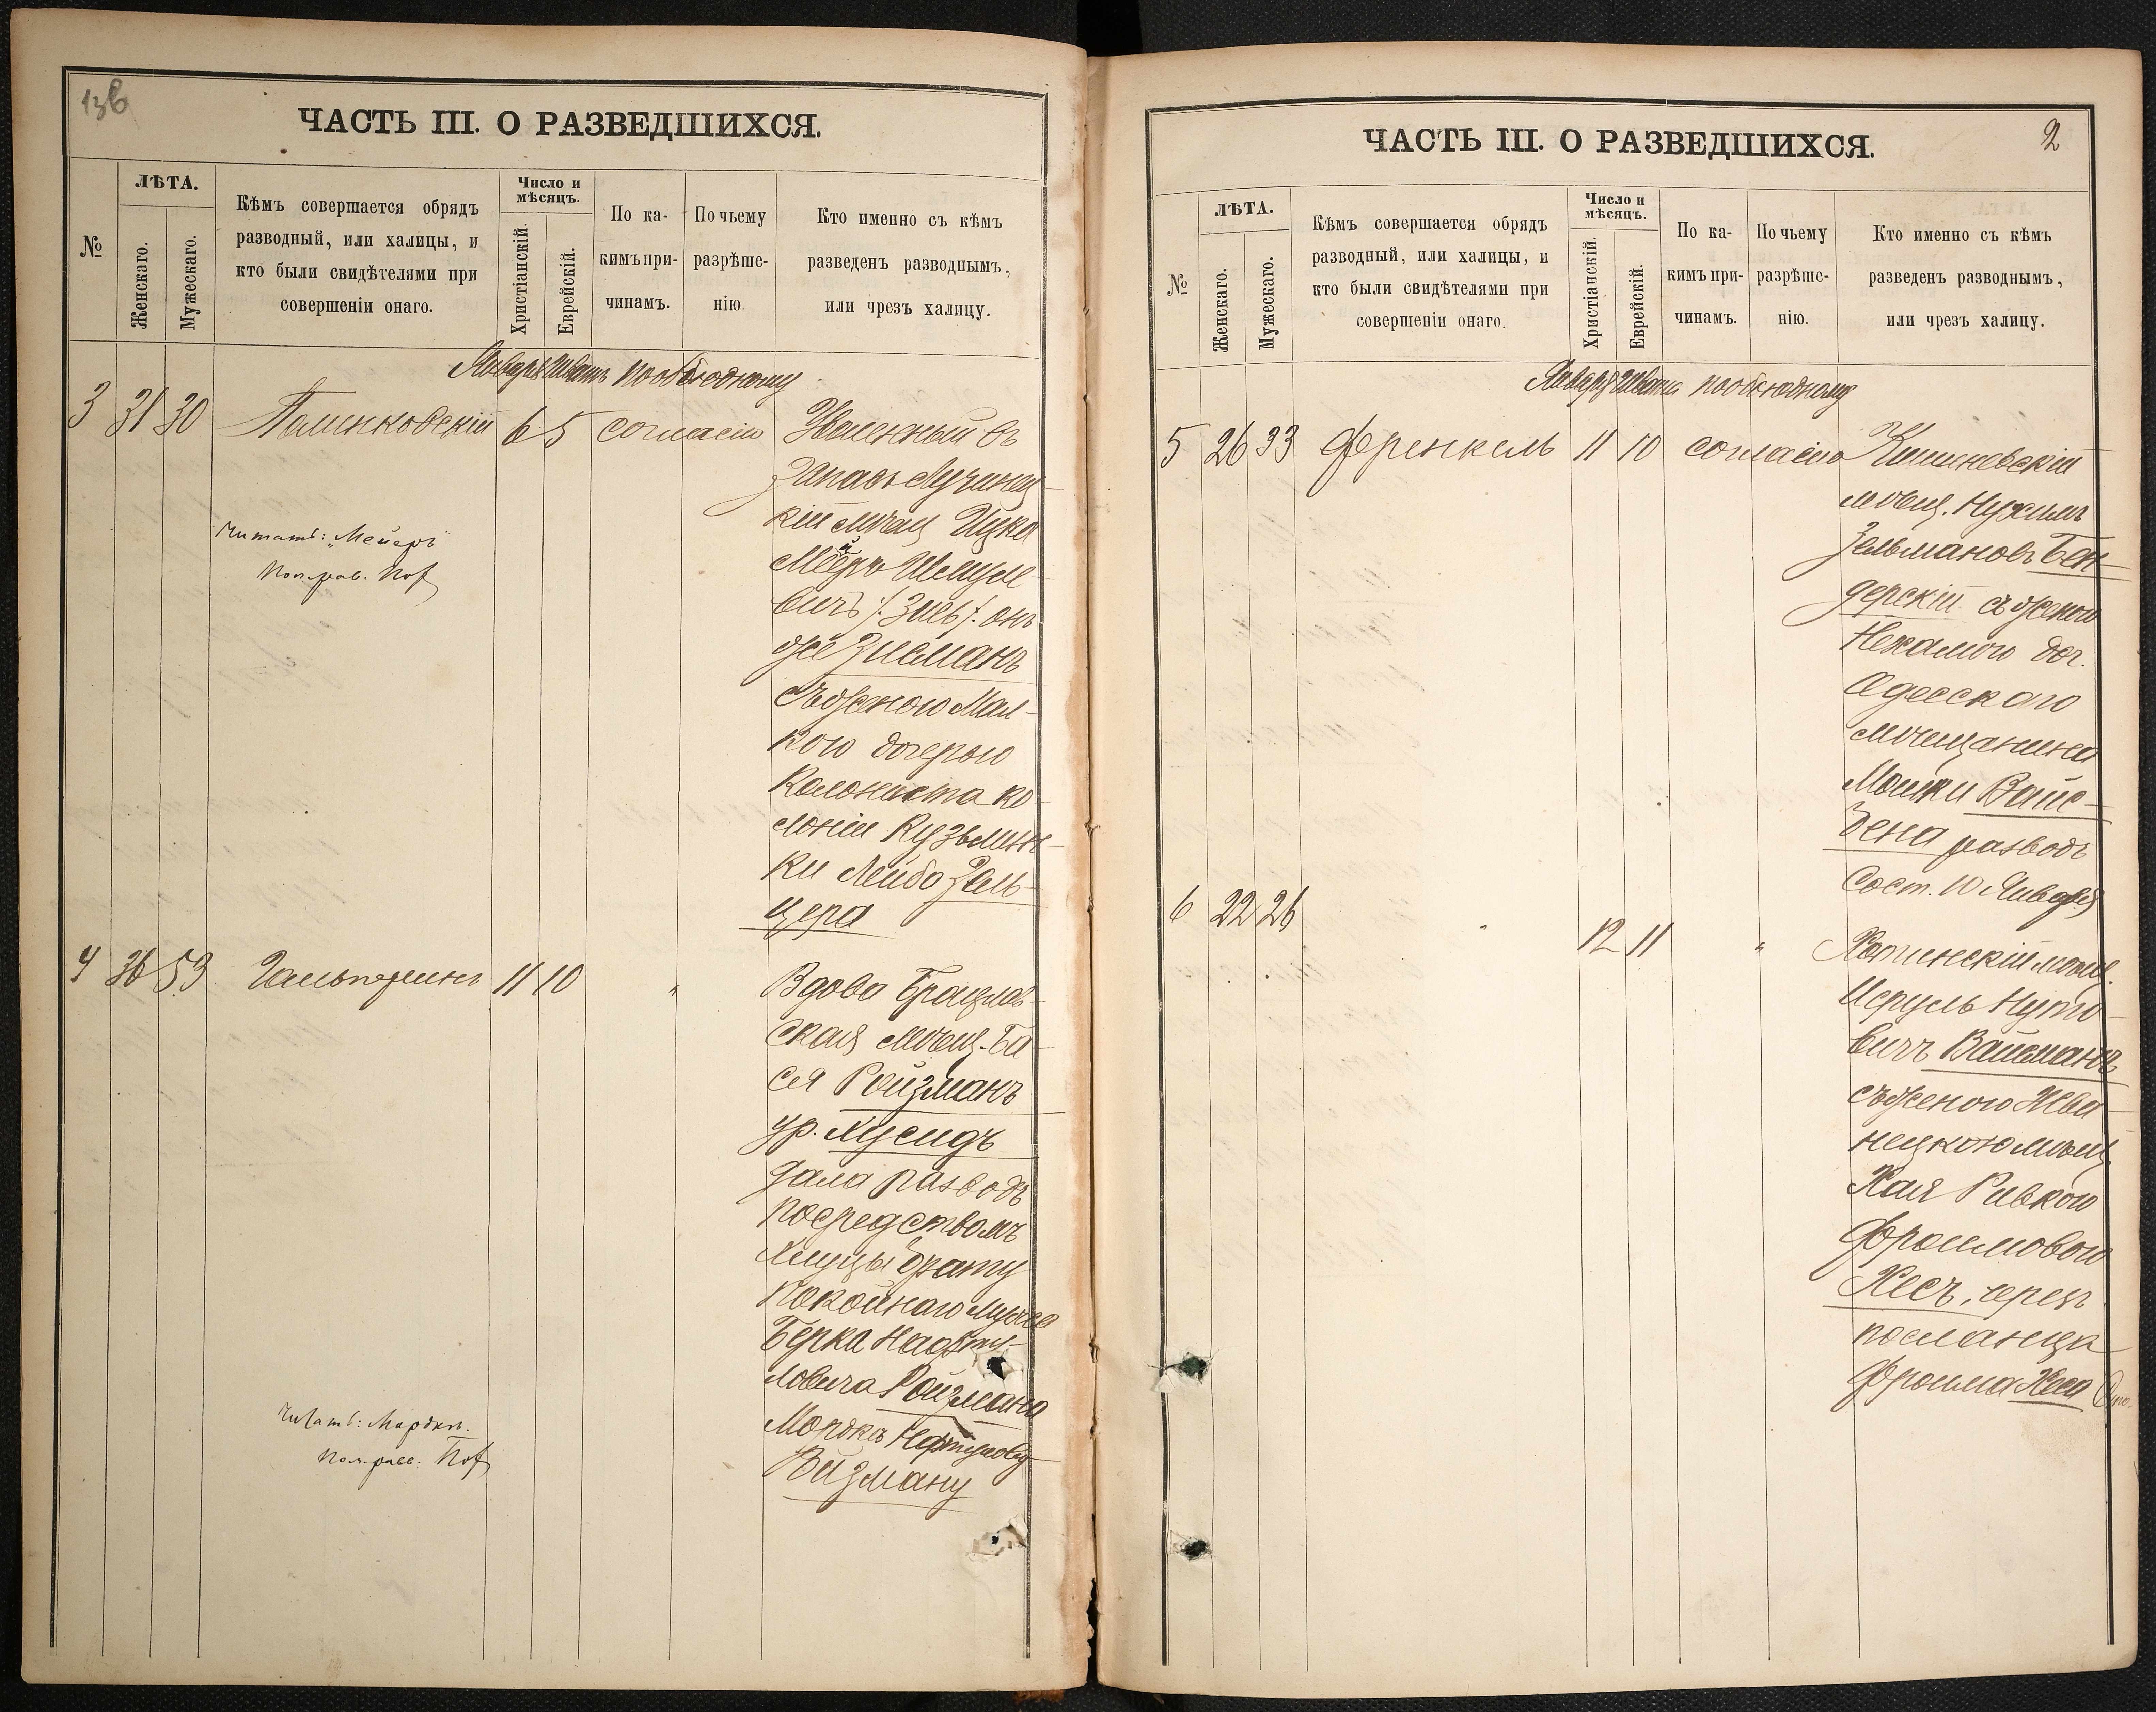 ЧАСТЬ III. О РАЗВЕДШИХСЯ.
№
ЛѢТА.
Женскаго.
Мужескаго.
Кѣмъ совершается обрядъ
разводный, или халицы, и
кто были свидѣтелями при
совершеніи онаго.
Число и
мѣсяцъ.
Христіанскій.
Еврейскій.
По ка-
кимъ при-
чинамъ.
По чьему
разрѣше-
нію.
Кто именно съ кѣмъ
разведенъ разводнымъ,
или чрезъ халицу.
Января Шватъ по обоюдному
3 31 30 6 5 согласію
Уволенный въ
запасъ Лучинец-
кій мѣщ Ицко
Мееръ
вичъ /: Зись /: онъ
же Зисманъ
съ женою Мал-
кою дочерью
Колониста ко-
лоніи Кузьмин-
ки Лейбо Зель-
цера
Читать: „Мейеръ
4 36 53 Гальперинъ 11 10 "
Вдова Брацлав-
ская мѣщ. Ба-
ся Ройзманъ
ур. Хусидъ
дала разводъ
посредствомъ
Хлицы брату
покойнаго мужа
Берка Нафту-
ловича Ройзмана
Мордкѣ
Ройзману
Читать: Мордкѣ.
ЧАСТЬ III. О РАЗВЕДШИХСЯ.
2
№
ЛѢТА.
Женскаго.
Мужескаго.
Кѣмъ совершается обрядъ
разводный, или халицы, и
кто были свидѣтелями при
совершеніи онаго.
Число и
мѣсяцъ.
Христіанскій.
Еврейскій.
По ка-
кимъ при-
чинамъ.
По чьему
разрѣше-
нію.
Кто именно съ кѣмъ
разведенъ разводнымъ,
или чрезъ халицу.
Января Швата по обоюдному
5 26 33 Френкель 11 10 согласію
Кишиневскій
мѣщ. Нухимъ
Зельмановъ Бен-
дерскій съ женою
Нехамою доч.
Одесскаго
мѣщанина
Мошки Вайс-
бена разводъ
Сост. 10 Января
6 22 26 " 12 11 "
Хотинскій мѣщ.
Исруль Нуто-
вичъ Вайсманъ
съ женою Жва-
нецкою мѣщ.
Хая Ривкою
Фроимовою
Хесъ, чрезъ
посланца
Фроима Хеса